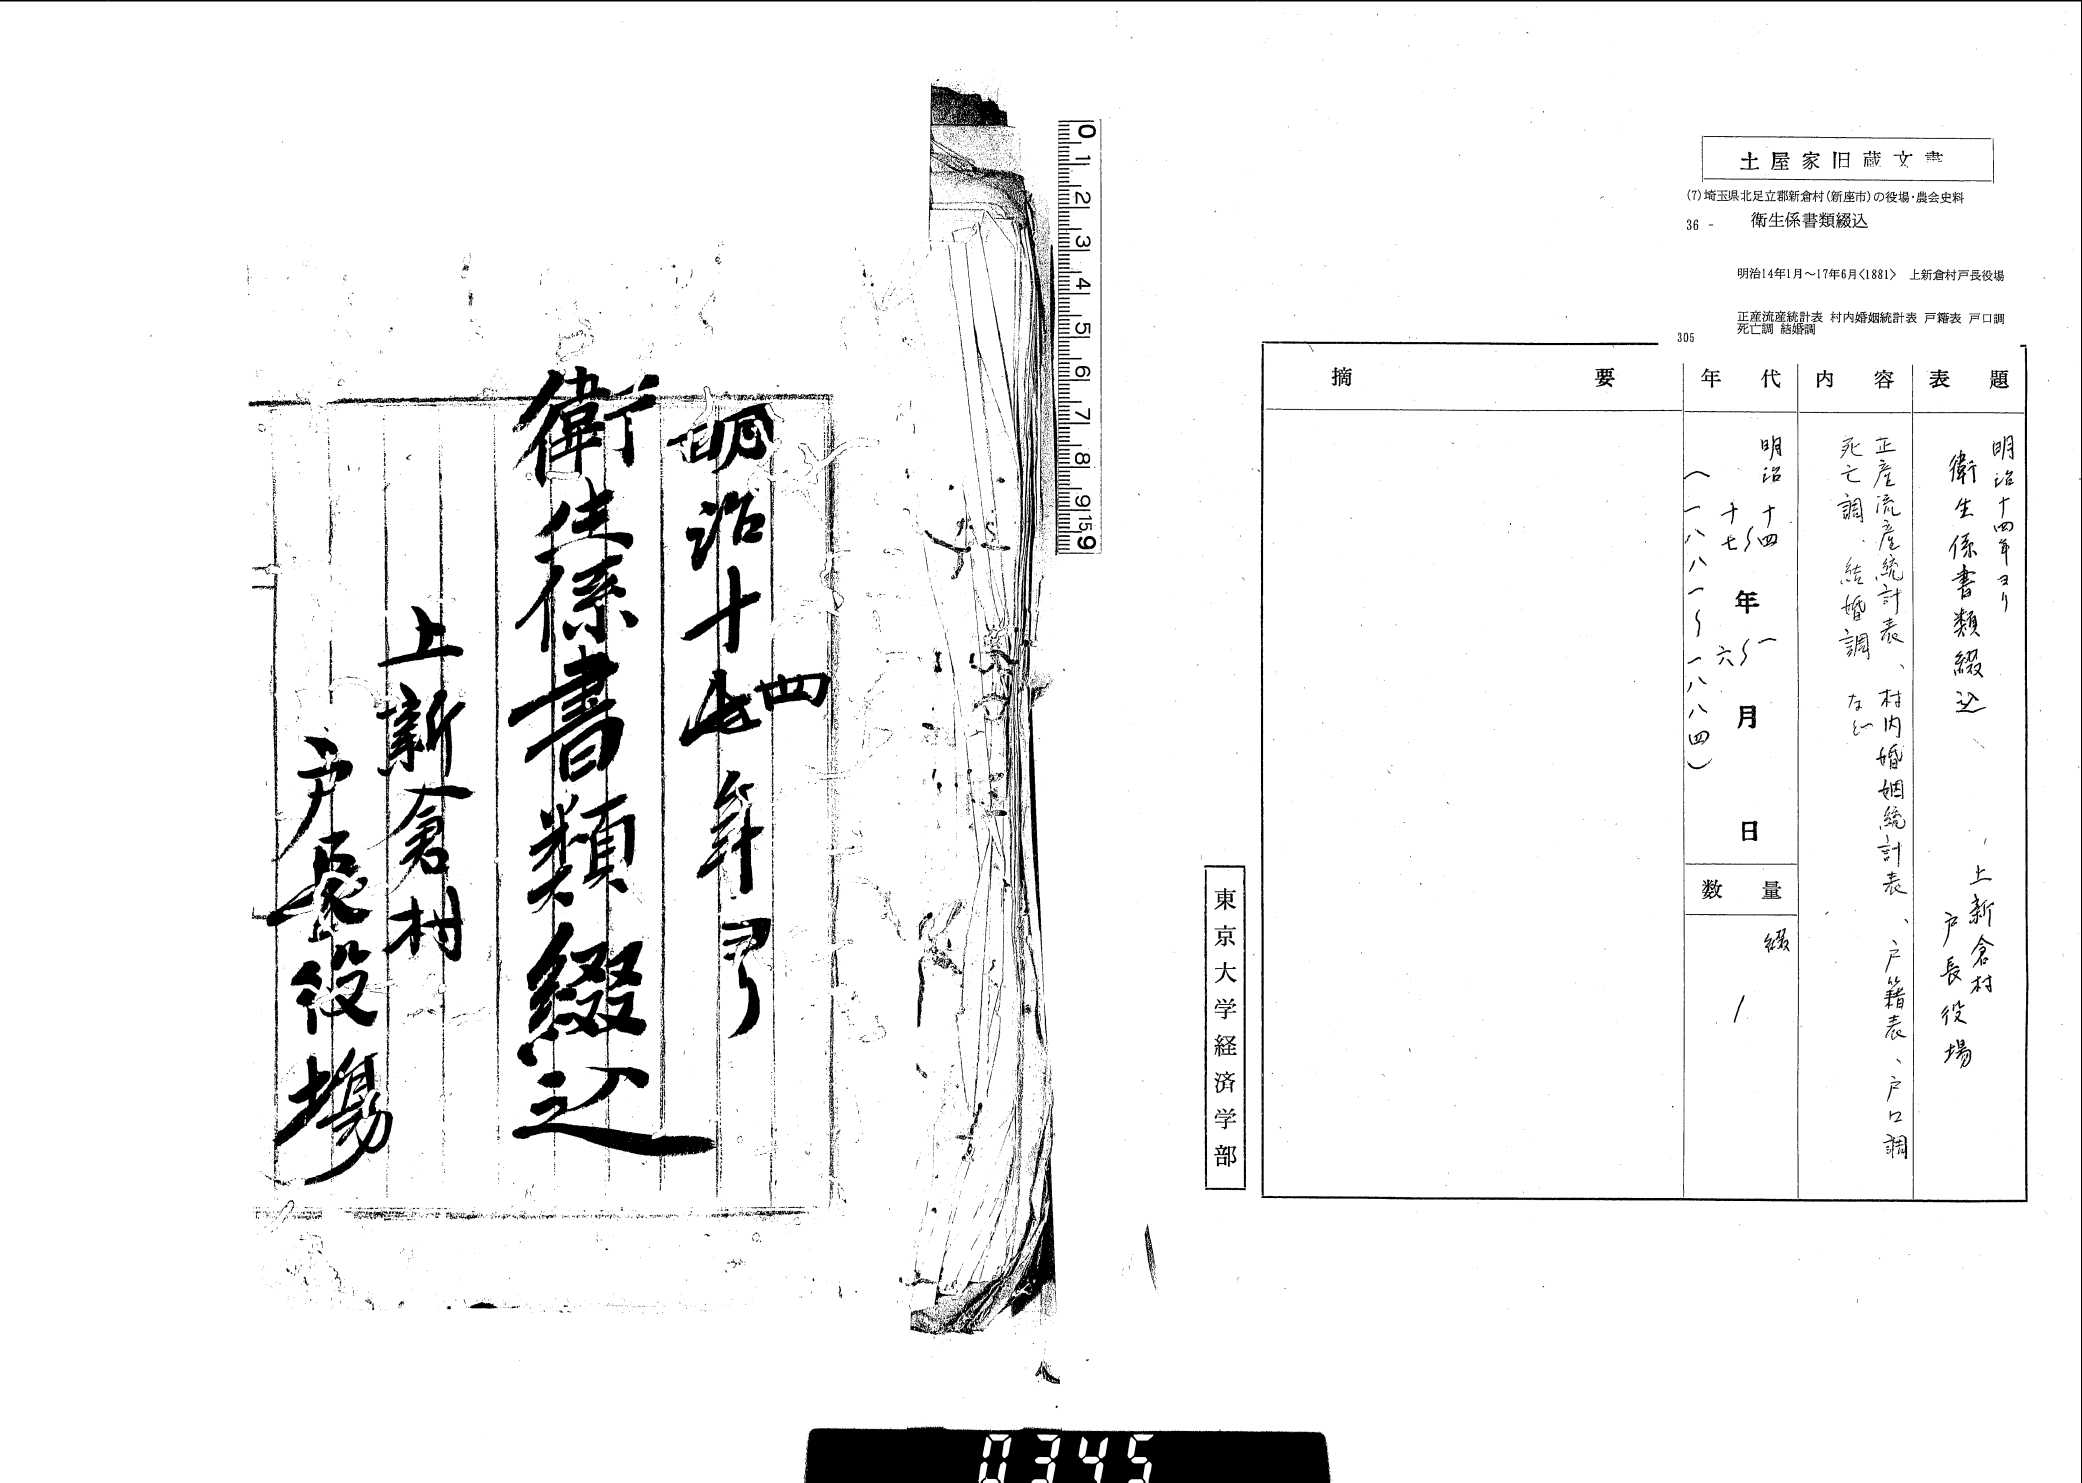 土屋家旧蔵文書
(7)埼玉県北足立郡新倉村(新座市)の役場・農会史料
36 - 衛生係書類綴込
明治14年1月～17年6月〈1881〉 上新倉村戸長役場
正産流産統計表 村内婚姻統計表 戸籍表 戸口調
死亡調 結婚調
305
表題
明治十四年ヨリ
衛生係書類綴込
上新倉村
戸長役場
内容
正産流産統計表、村内婚姻統計表、戸籍表、戸口調
死亡調、結婚調 など
年代
明治 十四～十七 年 一～六 月 日
(一八八一～一八八四)
数量
綴
1
摘要
東京大学経済学部
0 1 2 3 4 5 6 7 8 9 15 9
明治十四年ヨリ
衛生係書類綴込
上新倉村
戸長役場
0345